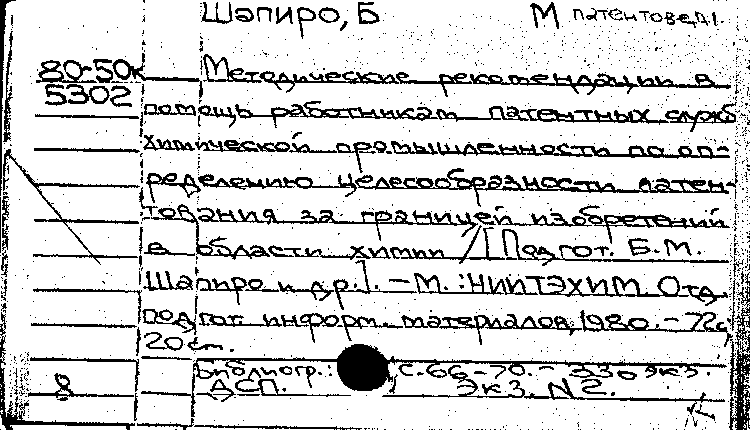 Шапиро, Б М патентовед.
80-50к Методические рекомендации в
5302 помощь работникам патентных служб
химической промышленности по оп-
ределению целесообразности патен-
тования за границей изобретений
в области химии / [Подгот. Б.М.
Шапиро и др.]. – М. : НИИТЭХИМ. Отд.
подгот. информ. материалов, 1980. – 72с
20 см.
Библиогр.: с.66-70. – 330 экз.
8 ДСП. Экз. N2.